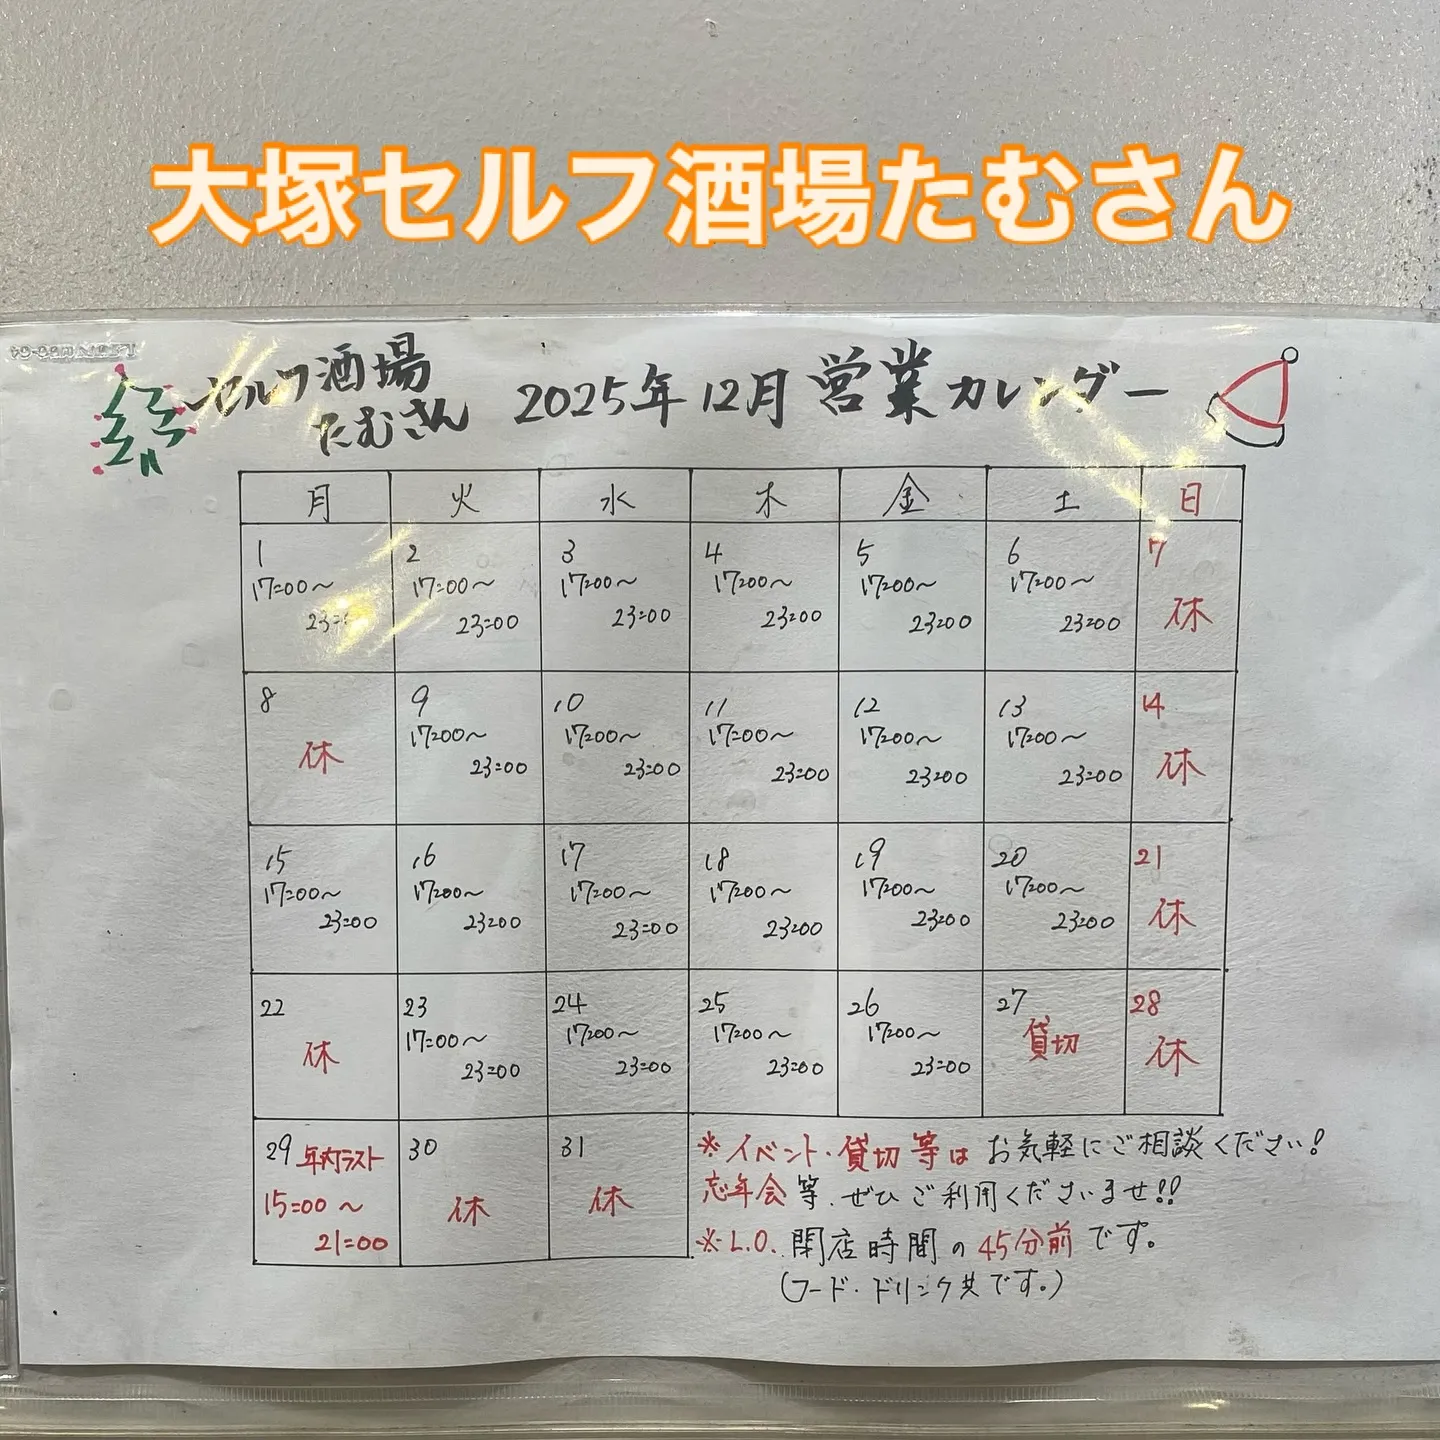 大塚セルフ酒場たむさん
セルフ酒場
たむさん
2025年12月営業カレンダー
月 火 水 木 金 土 日
1 2 3 4 5 6 7
17:00～ 17:00～ 17:00～ 17:00～ 17:00～ 17:00～ 休
23:00 23:00 23:00 23:00 23:00 23:00
8 9 10 11 12 13 14
休 17:00～ 17:00～ 17:00～ 17:00～ 17:00～ 休
23:00 23:00 23:00 23:00 23:00
15 16 17 18 19 20 21
17:00～ 17:00～ 17:00～ 17:00～ 17:00～ 17:00～ 休
23:00 23:00 23:00 23:00 23:00 23:00
22 23 24 25 26 27 28
休 17:00～ 17:00～ 17:00～ 17:00～ 貸切 休
23:00 23:00 23:00 23:00
29 年内ラスト 30 31
15:00～ 休 休
21:00
※イベント・貸切等はお気軽にご相談ください!
忘年会等、ぜひご利用くださいませ!!
※L.O. 閉店時間の45分前です。
(フード・ドリンク共です。)